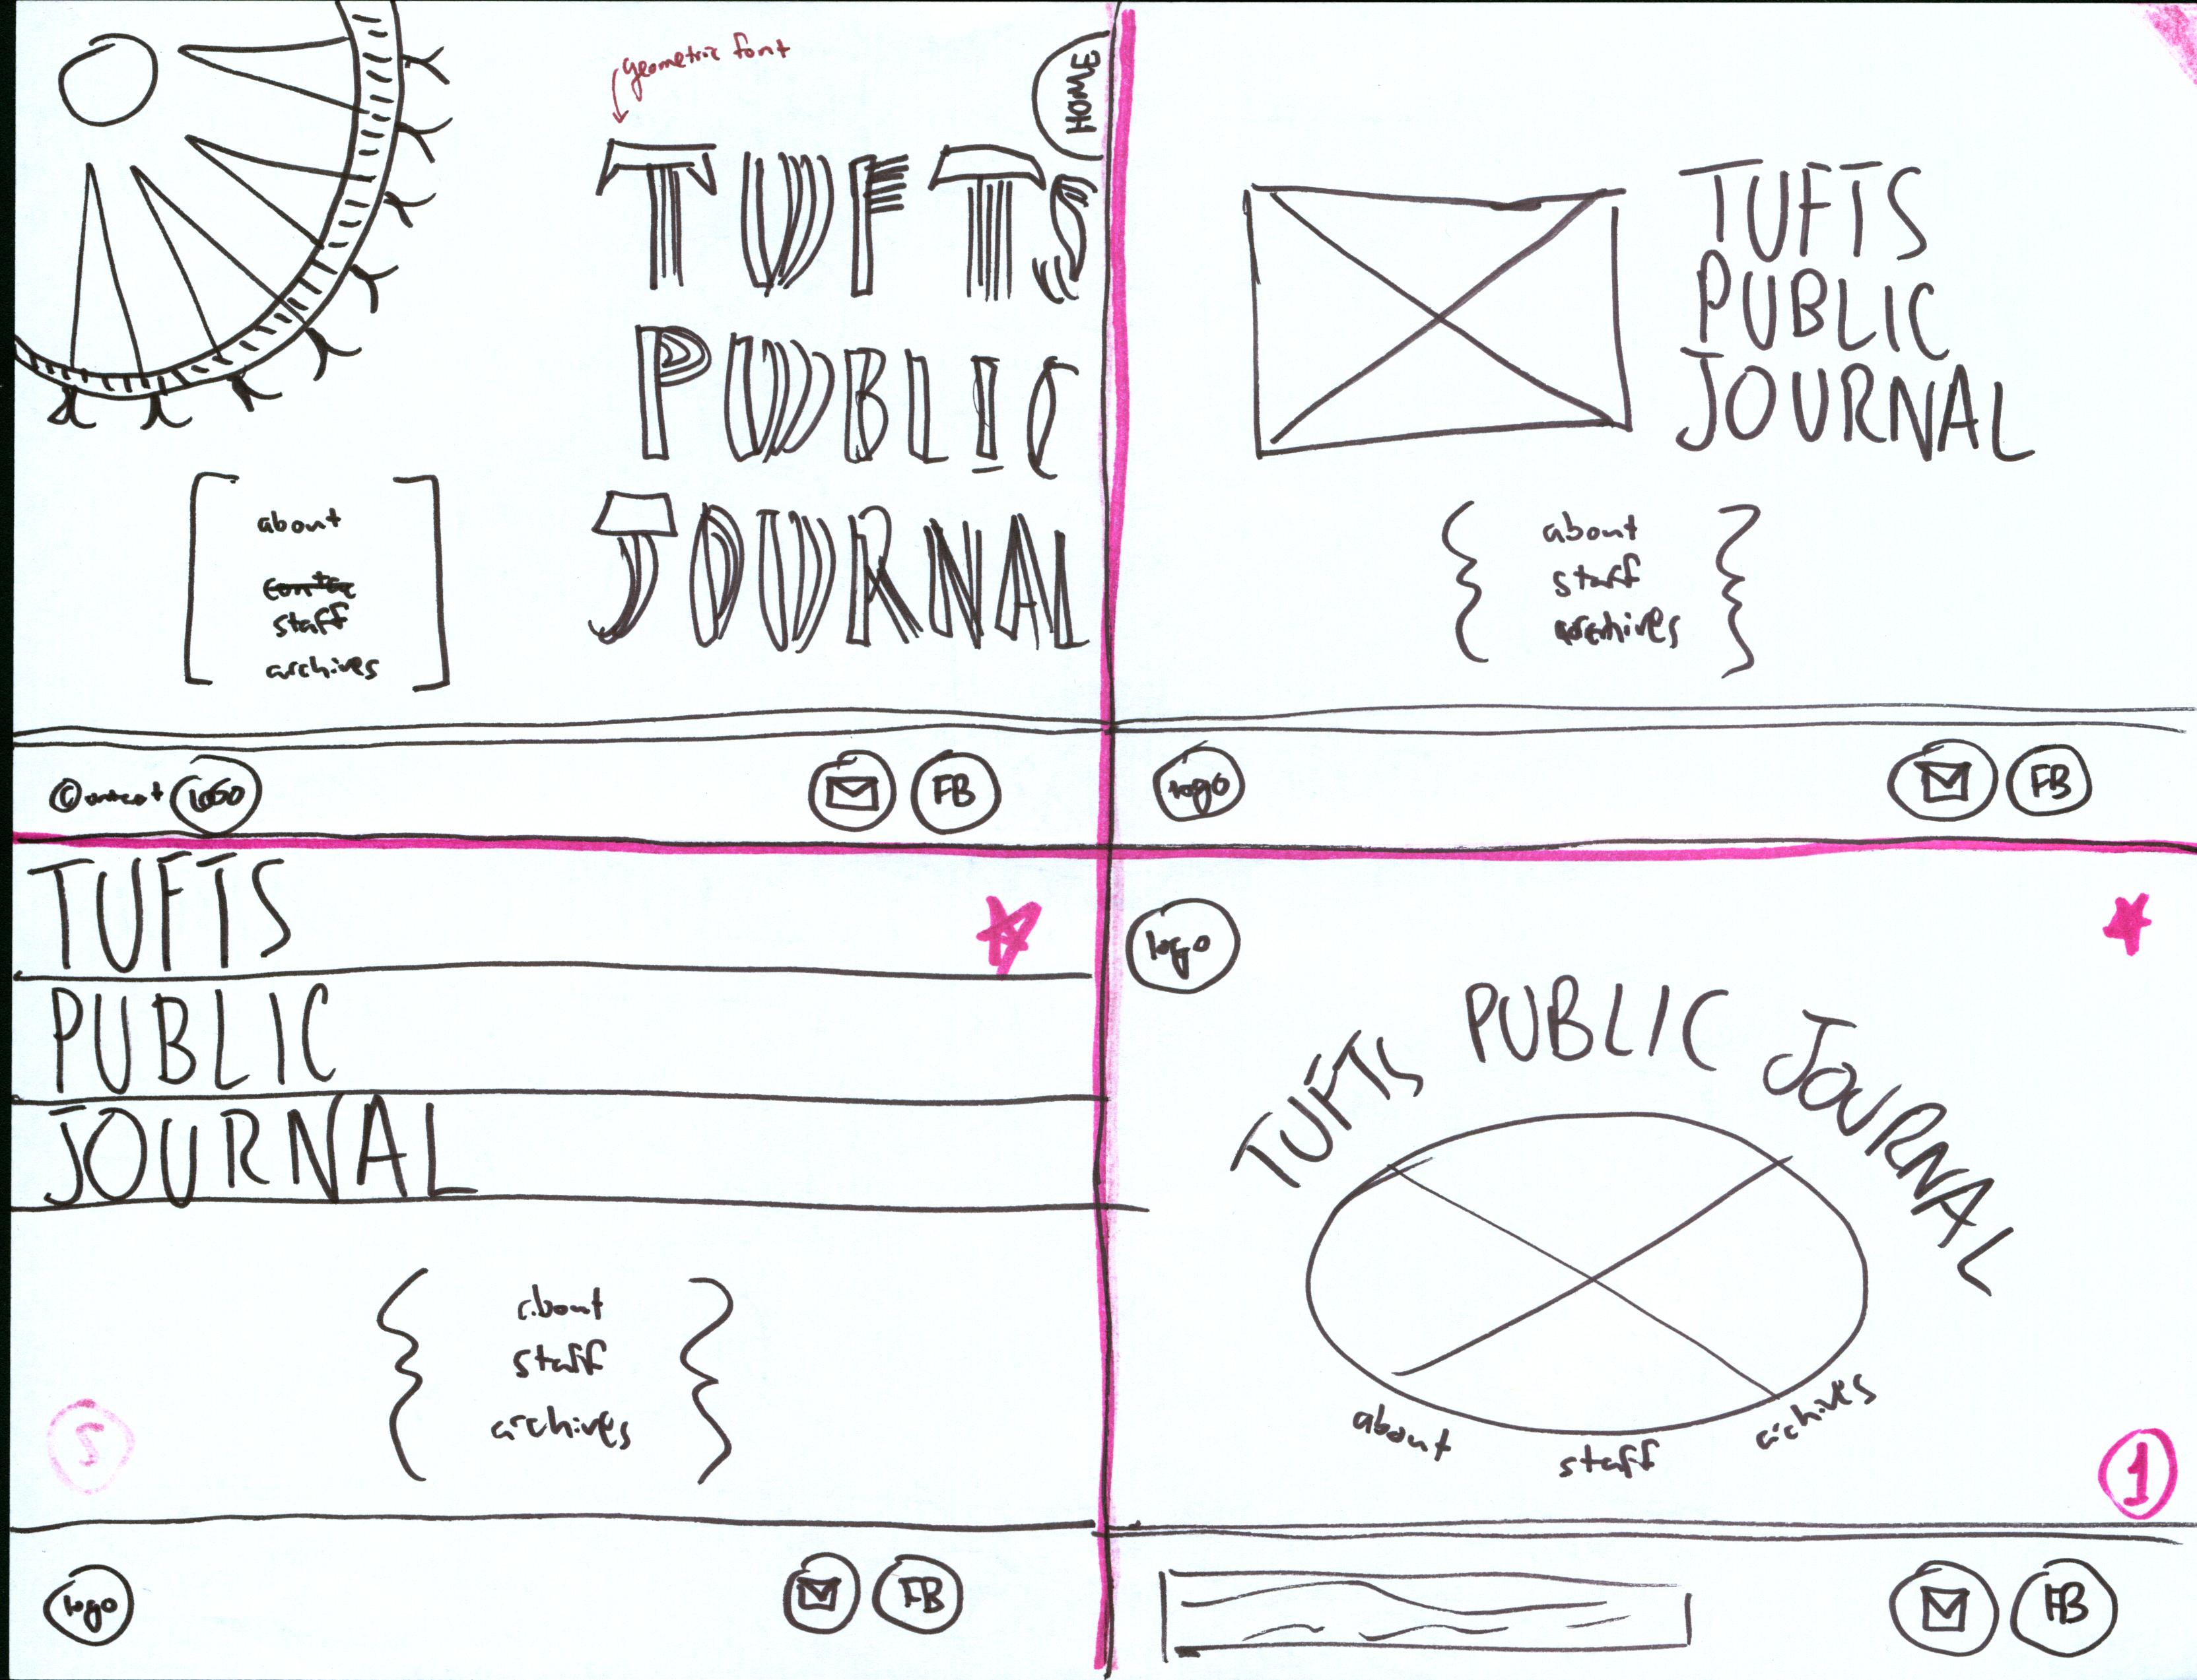 geometric font
HOME
TUFTS
PUBLIC
JOURNAL
about
staff
archives
©
LOGO
FB
TUFTS
PUBLIC
JOURNAL
about
staff
archives
logo
FB
TUFTS
PUBLIC
JOURNAL
about
staff
archives
logo
FB
logo
TUFTS PUBLIC JOURNAL
about
staff
archives
1
FB